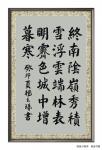 終南陰嶺秀積
雪浮雲端林表
明霽色城中增
暮寒 癸卯夏楊書